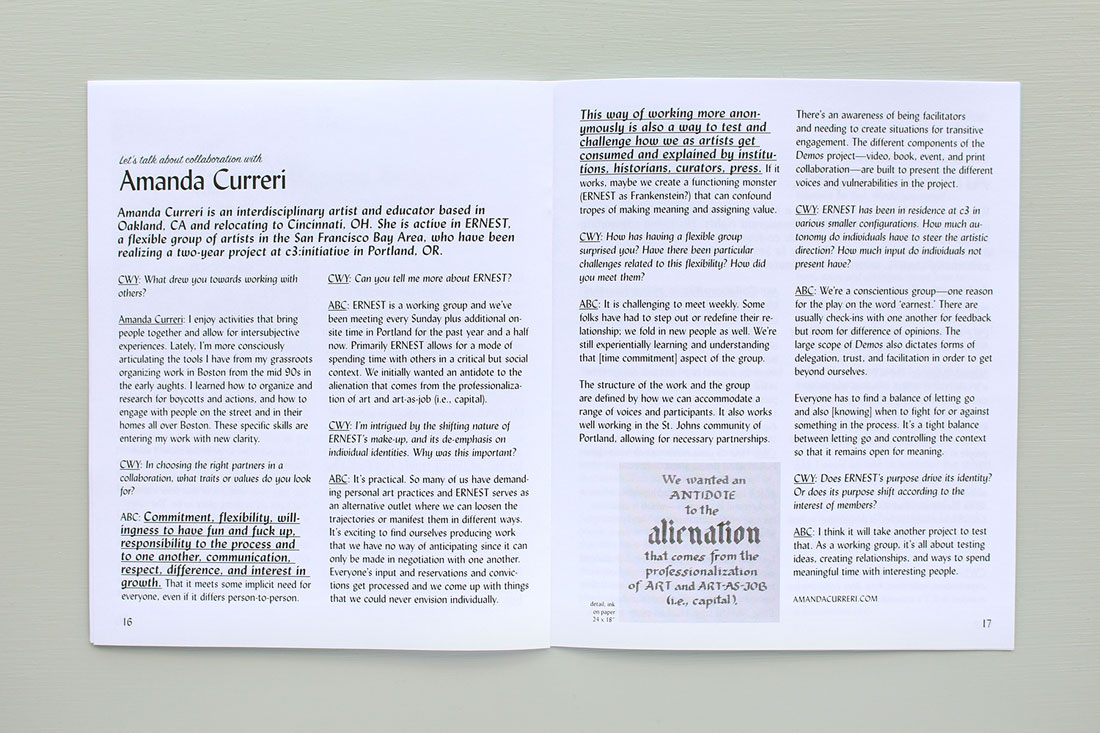 Let's talk about collaboration with
Amanda Curreri
Amanda Curreri is an interdisciplinary artist and educator based in
Oakland, CA and relocating to Cincinnati, OH. She is active in ERNEST,
a flexible group of artists in the San Francisco Bay Area, who have been
realizing a two-year project at c3:initiative in Portland, OR.
CWY: What drew you towards working with
others?
Amanda Curreri: I enjoy activities that bring
people together and allow for intersubjective
experiences. Lately, I'm more consciously
articulating the tools I have from my grassroots
organizing work in Boston from the mid 90s in
the early aughts. I learned how to organize and
research for boycotts and actions, and how to
engage with people on the street and in their
homes all over Boston. These specific skills are
entering my work with new clarity.
CWY: In choosing the right partners in a
collaboration, what traits or values do you look
for?
ABC: Commitment, flexibility, will-
ingness to have fun and fuck up,
responsibility to the process and
to one another, communication,
respect, difference, and interest in
growth. That it meets some implicit need for
everyone, even if it differs person-to-person.
16
CWY: Can you tell me more about ERNEST?
ABC: ERNEST is a working group and we've
been meeting every Sunday plus additional on-
site time in Portland for the past year and a half
now. Primarily ERNEST allows for a mode of
spending time with others in a critical but social
context. We initially wanted an antidote to the
alienation that comes from the professionaliza-
tion of art and art-as-job (i.e., capital).
CWY: I'm intrigued by the shifting nature of
ERNEST's make-up, and its de-emphasis on
individual identities. Why was this important?
ABC: It's practical. So many of us have demand-
ing personal art practices and ERNEST serves as
an alternative outlet where we can loosen the
trajectories or manifest them in different ways.
It's exciting to find ourselves producing work
that we have no way of anticipating since it can
only be made in negotiation with one another.
Everyone's input and reservations and convic-
tions get processed and we come up with things
that we could never envision individually.
This way of working more anon-
ymously is also a way to test and
challenge how we as artists get
consumed and explained by institu-
tions, historians, curators, press. If it
works, maybe we create a functioning monster
(ERNEST as Frankenstein?) that can confound
tropes of making meaning and assigning value.
CWY: How has having a flexible group
surprised you? Have there been particular
challenges related to this flexibility? How did
you meet them?
ABC: It is challenging to meet weekly. Some
folks have had to step out or redefine their re-
lationship; we fold in new people as well. We're
still experientially learning and understanding
that [time commitment] aspect of the group.
The structure of the work and the group
are defined by how we can accommodate a
range of voices and participants. It also works
well working in the St. Johns community of
Portland, allowing for necessary partnerships.
We wanted an
ANTIDOTE
to the
alienation
that comes from the
professionalization
of ART and ART-AS-JOB
(i.e., capital).
detail, ink
on paper
24 x 18"
There's an awareness of being facilitators
and needing to create situations for transitive
engagement. The different components of the
Demos project—video, book, event, and print
collaboration—are built to present the different
voices and vulnerabilities in the project.
CWY: ERNEST has been in residence at c3 in
various smaller configurations. How much au-
tonomy do individuals have to steer the artistic
direction? How much input do individuals not
present have?
ABC: We're a conscientious group—one reason
for the play on the word 'earnest.' There are
usually check-ins with one another for feedback
but room for difference of opinions. The
large scope of Demos also dictates forms of
delegation, trust, and facilitation in order to get
beyond ourselves.
Everyone has to find a balance of letting go
and also [knowing] when to fight for or against
something in the process. It's a tight balance
between letting go and controlling the context
so that it remains open for meaning.
CWY: Does ERNEST's purpose drive its identity?
Or does its purpose shift according to the
interest of members?
ABC: I think it will take another project to test
that. As a working group, it's all about testing
ideas, creating relationships, and ways to spend
meaningful time with interesting people.
AMANDACURRERI.COM
17